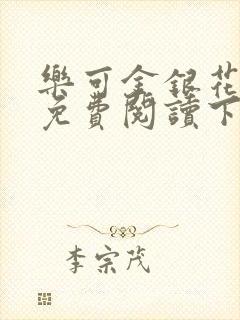 樂可金銀花
免費閱讀下
李宗茂